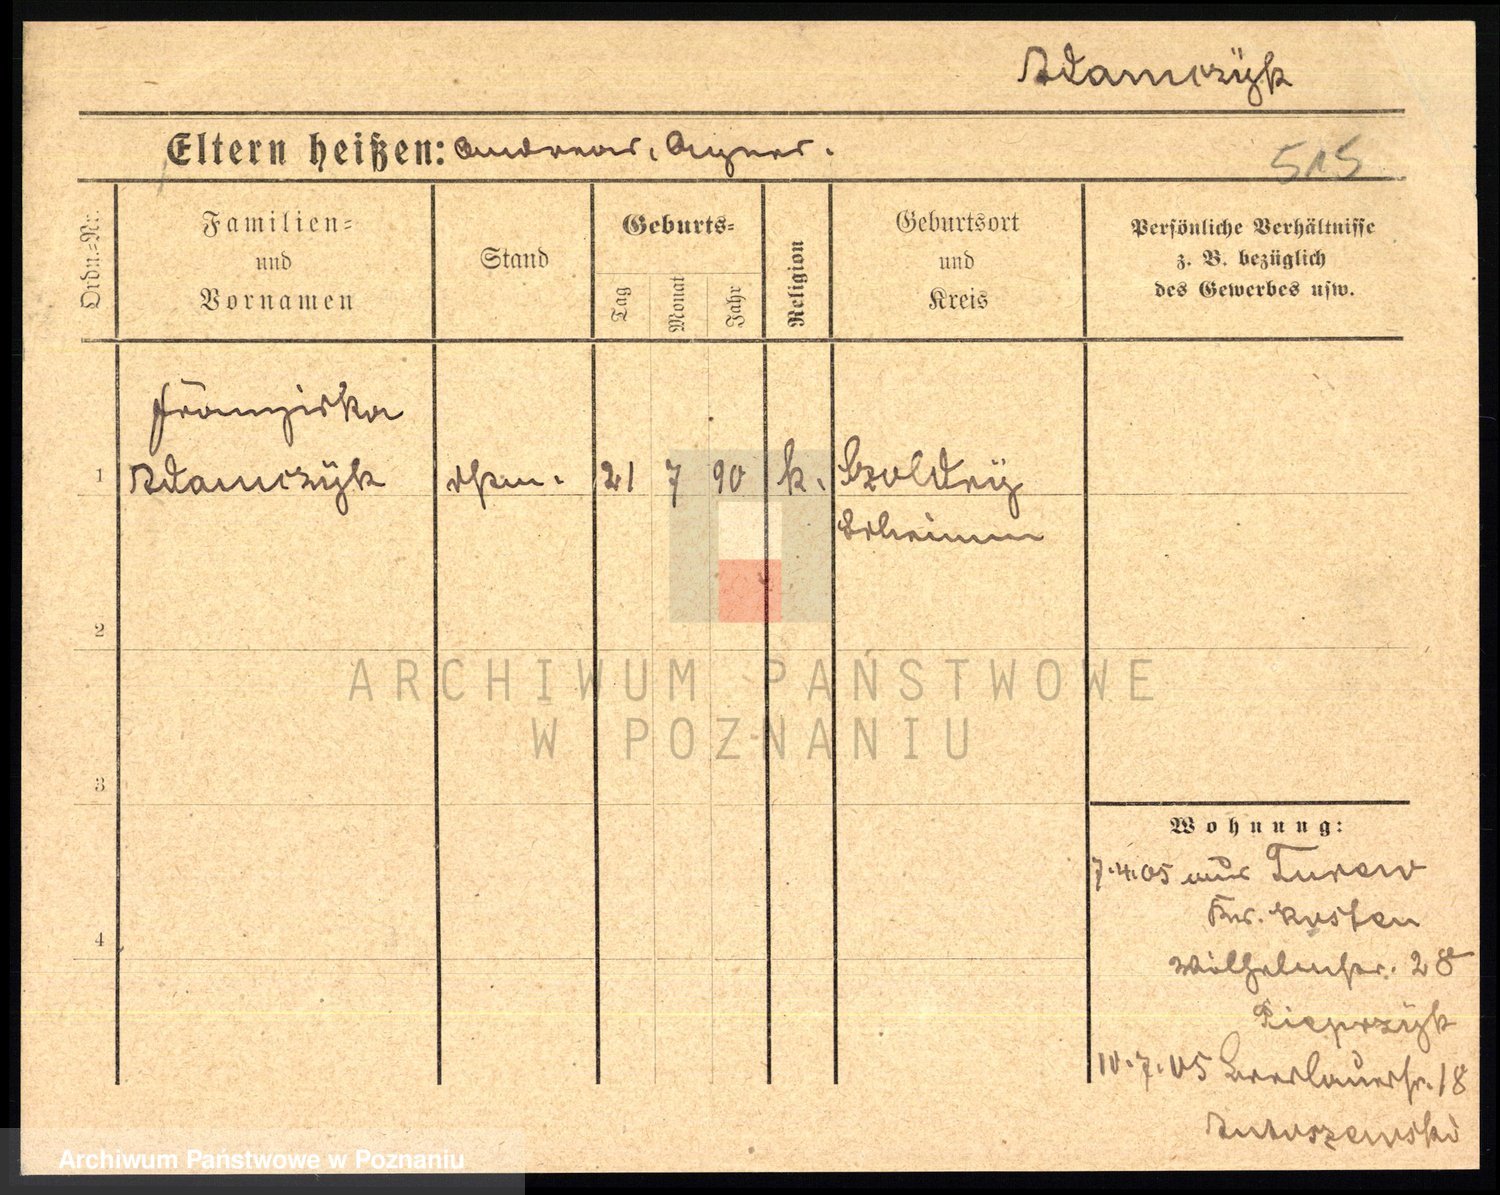 Adamczÿk
Eltern heißen: Andreas, Agnes.
515
Ordn.-Nr.
Familien-
und
Vornamen
Stand
Geburts-
Tag
Monat
Jahr
Religion
Geburtsort
und
Kreis
Persönliche Verhältnisse
z. B. bezüglich
des Gewerbes usw.
Franziska
1 Adamczÿk 21 7 90 k.
Schrimm
2
3
4
Wohnung:
7.4.05 aus Turew
Krs. Kosten
Wilhelmstr. 28
Pieprzÿk
10.7.05 Breslauerstr. 18
ARCHIWUM PAŃSTWOWE
W POZNANIU
Archiwum Państwowe w Poznaniu